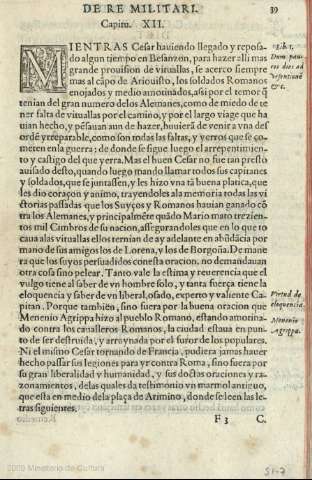 DE RE MILITARI. 39
Capitu. XII.
MIENTRAS Cesar hauiendo llegado y reposa-
do algun tiempo en Besanzon, para hazer alli mas
grande prouision de vituallas, se acerco siempre
mas al cãpo de Ariouisto, los soldados Romanos
enojados y medio amotinados, assi por el temor q̃
tenian del gran numero de los Alemanes, como de miedo de te
ner falta de vituallas por el camino, y por el largo viage que ha
uian hecho, y pẽsauan aun de hazer, huuierã de venir a vna des
ordẽ y treparable, como son todas las faltas, y yerros que se co-
meten en la guerra; de donde se sigue luego el arrepentimien-
to y castigo del que yerra. Mas el buen Cesar no fue tan presto
auisado desto, quando luego mando llamar todos sus capitanes
y soldados, que se juntassen, y les hizo vna tã buena platica, que
les dio coraçon y animo, trayendoles ala memoria todas las vi
ctorias passadas que los Suyços y Romanos hauian ganado cõ
tra los Alemanes, y principalmẽte quãdo Mario mato trezien-
tos mil Cimbros de su nacion, assegurandoles que en lo que to
caua alas vituallas ellos ternian de ay adelante en abũdãcia por
mano de sus amigos los de Lorena, y los de Borgoña. De mane
ra que los suyos persuadidos con esta oracion, no demandauan
otra cosa sino pelear. Tanto vale la estima y reuerencia que el
vulgo tiene al saber de vn hombre solo, y tanta fuerça tiene la
eloquencia y saber de vn liberal, osado, experto y valiente Ca-
pitan. Porque tambien, sino fuera por la buena oracion que
Menenio Agrippa hizo al pueblo Romano, estando amotina-
do contra los caualleros Romanos, la ciudad estaua en pun-
to de ser destruida, y arruynada por el furor de los populares.
Ni el mismo Cesar tornando de Francia, pudiera jamas hauer
hecho passar sus legiones para yr contra Roma, sino fuera por
su gran liberalidad y humanidad, y sus doctas oraciones y ra-
zonamientos, delas quales da testimonio vn marmol antiguo,
que esta en medio dela plaça de Arimino, donde se leen las le-
tras siguientes.
F 3 C.
Lib. 1.
Dum pau-
cos dies ad
Vesontionẽ
&c.
Virtud de
eloquencia.
Menenio
Agrippa.
51-7
2009 Ministerio de Cultura